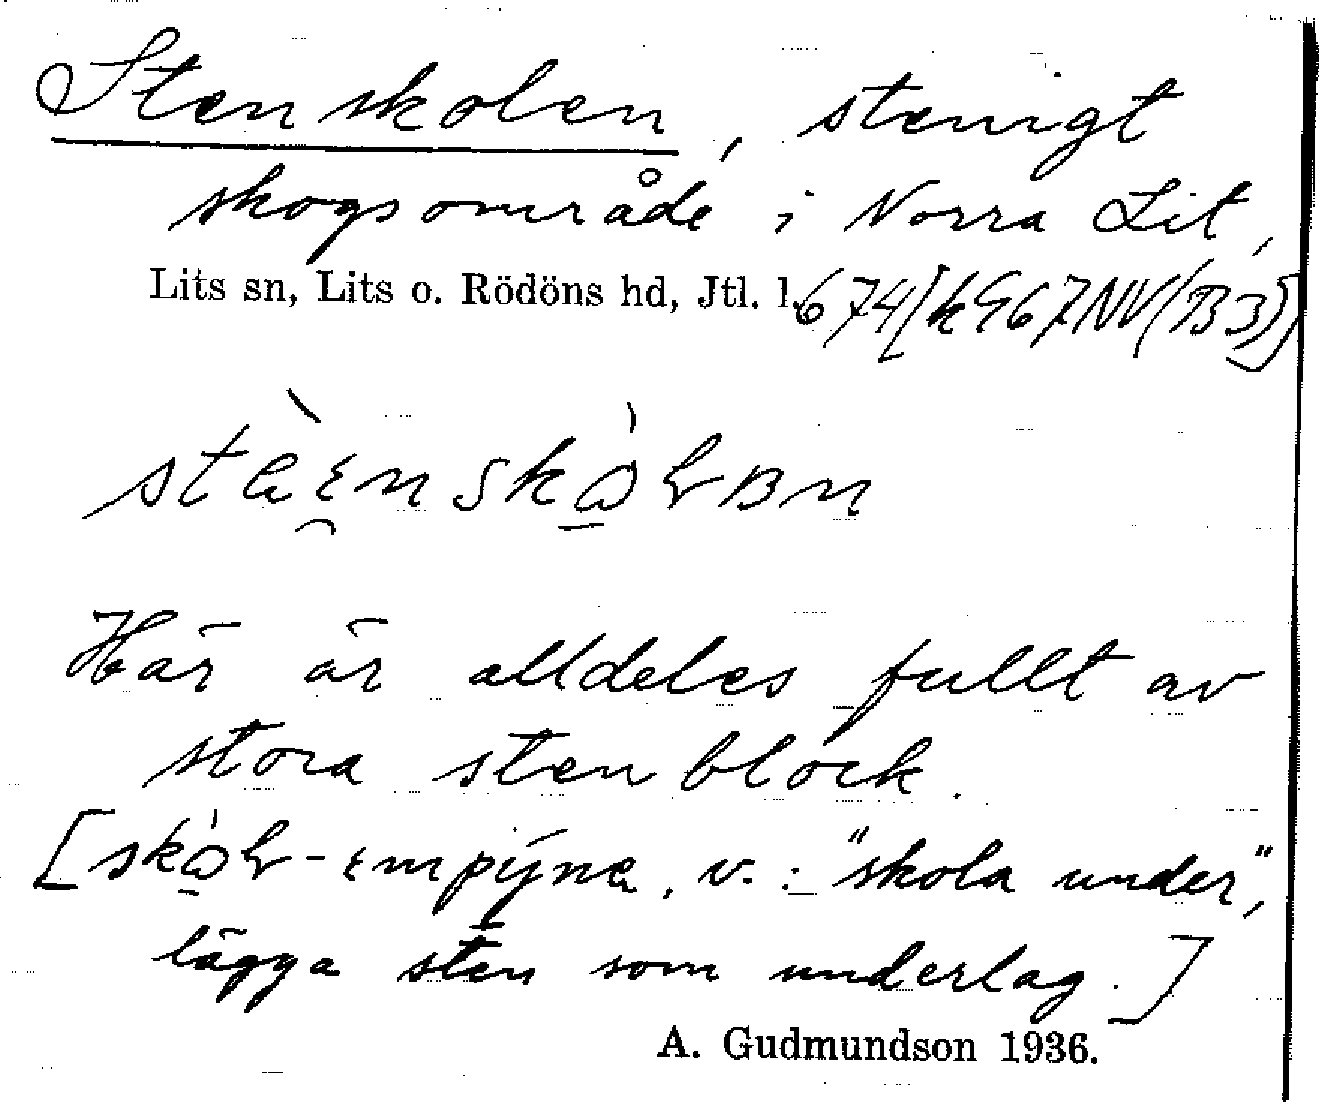 Stenskolen, stenigt
skogsområde i Norra Lit,
Lits sn, Lits o. Rödöns hd, Jtl. l. 674[k967NV(B3)]
Här är alldeles fullt av
stora stenblock.
v.: "skola under",
lägga sten som underlag.]
A. Gudmundson 1936.